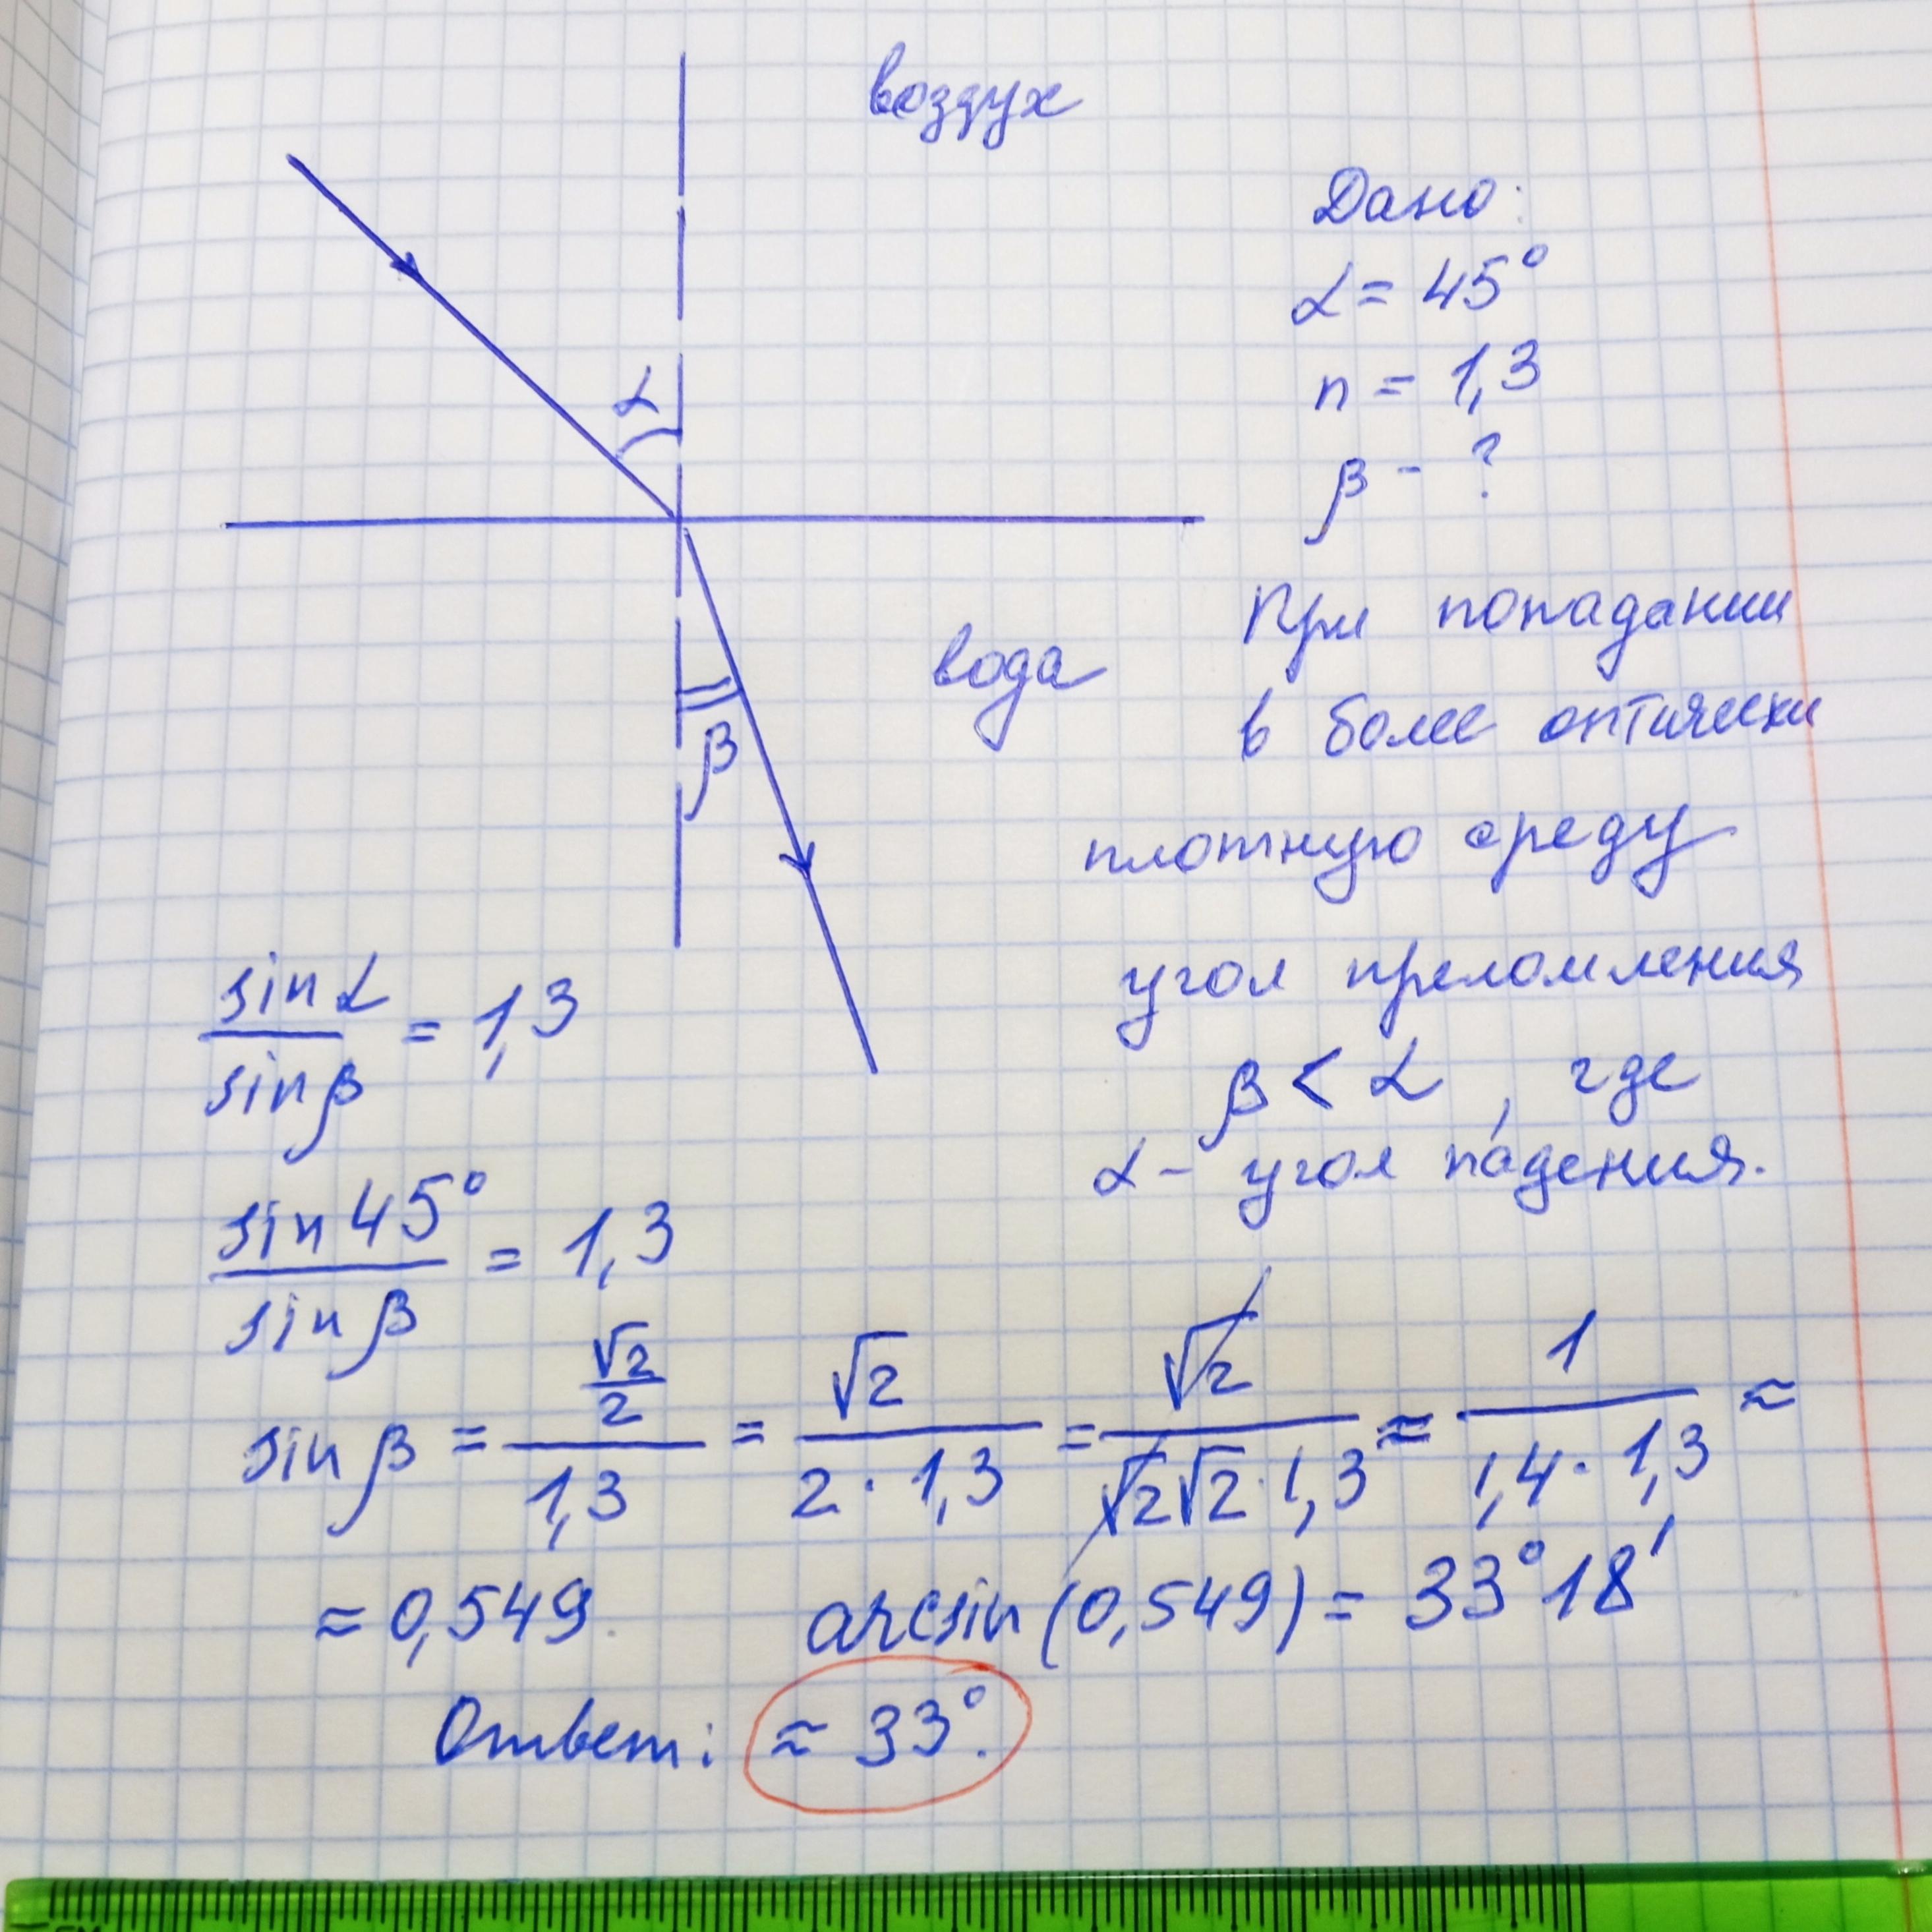 воздух
Дано:
α = 45°
n = 1,3
β - ?
α
β
вода
При попадании
в более оптически
плотную среду
угол преломления
β < α , где
α - угол падения.
sin α / sin β = 1,3
sin 45° / sin β = 1,3
sin β = (√2/2) / 1,3 = √2 / (2 · 1,3) = √2 / (√2 √2 · 1,3) ≈ 1 / (1,4 · 1,3) ≈
≈ 0,549. arcsin (0,549) = 33°18′
Ответ: ≈ 33°.